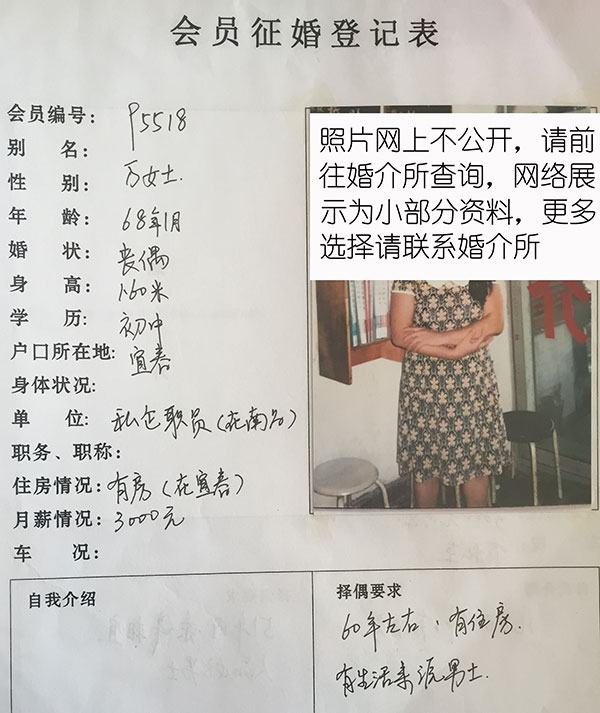 会员征婚登记表
会员编号: P5518
别 名:
性 别: 万女士.
年 龄: 68年1月
婚 状: 丧偶
身 高: 1.60米
学 历: 初中
户口所在地: 宜春
身体状况:
单 位: 私企职员(在南昌)
职务、职称:
住房情况: 有房(在宜春)
月薪情况: 3000元
车 况:
照片网上不公开，请前
往婚介所查询，网络展
示为小部分资料，更多
选择请联系婚介所
介
自我介绍
择偶要求
60年左右、有住房.
有生活来源男士.